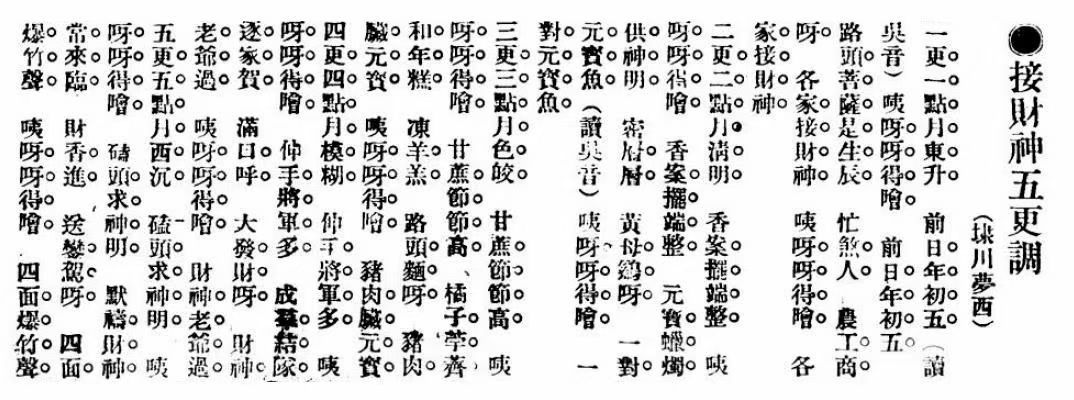 ●接財神五更調
(川夢西)
一更一點月東升 前日年初五(讀
吳音) 咦呀呀得噲 前日年初五
路頭菩薩是生辰 忙煞人 農工商
呀 各家接財神 咦呀呀得噲 各
家接財神
二更二點月清明 香案擺端整 咦
呀呀得噲 香案擺端整 元寶蠟燭
供神明 密層層 黃母鷄呀 一對
元寶魚(讀吳音) 咦呀呀得噲 一
對元寶魚
三更三點月色皎 甘蔗節節高 咦
呀呀得噲 甘蔗節節高、橘子荸薺
和年糕 凍羊羔 路頭麵呀 豬肉
臟元寶 咦呀呀得噲 豬肉臟元寶
四更四點月模糊 伸手將軍多 咦
呀呀得噲 伸手將軍多 成羣結隊
逐家賀 滿口呼 大發財呀 財神
老爺過 咦呀呀得噲 財神老爺過
五更五點月西沉 磕頭求神明 咦
呀呀得噲 磕頭求神明 默禱財神
常來臨 財香進 送鑾駕呀 四面
爆竹聲 咦呀呀得噲 四面爆竹聲